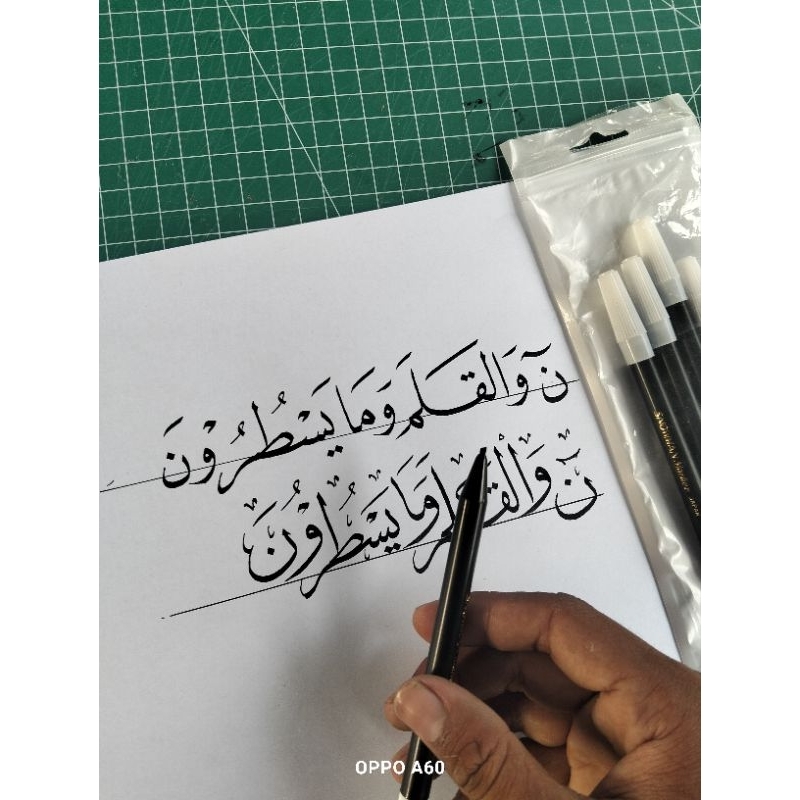 نٓ وَالقَلَمِ وَمَا يَسْطُرُوْنَ
نٓ وَالْقَلَمِ وَمَا يَسْطُرُوْنَ
OPPO A60